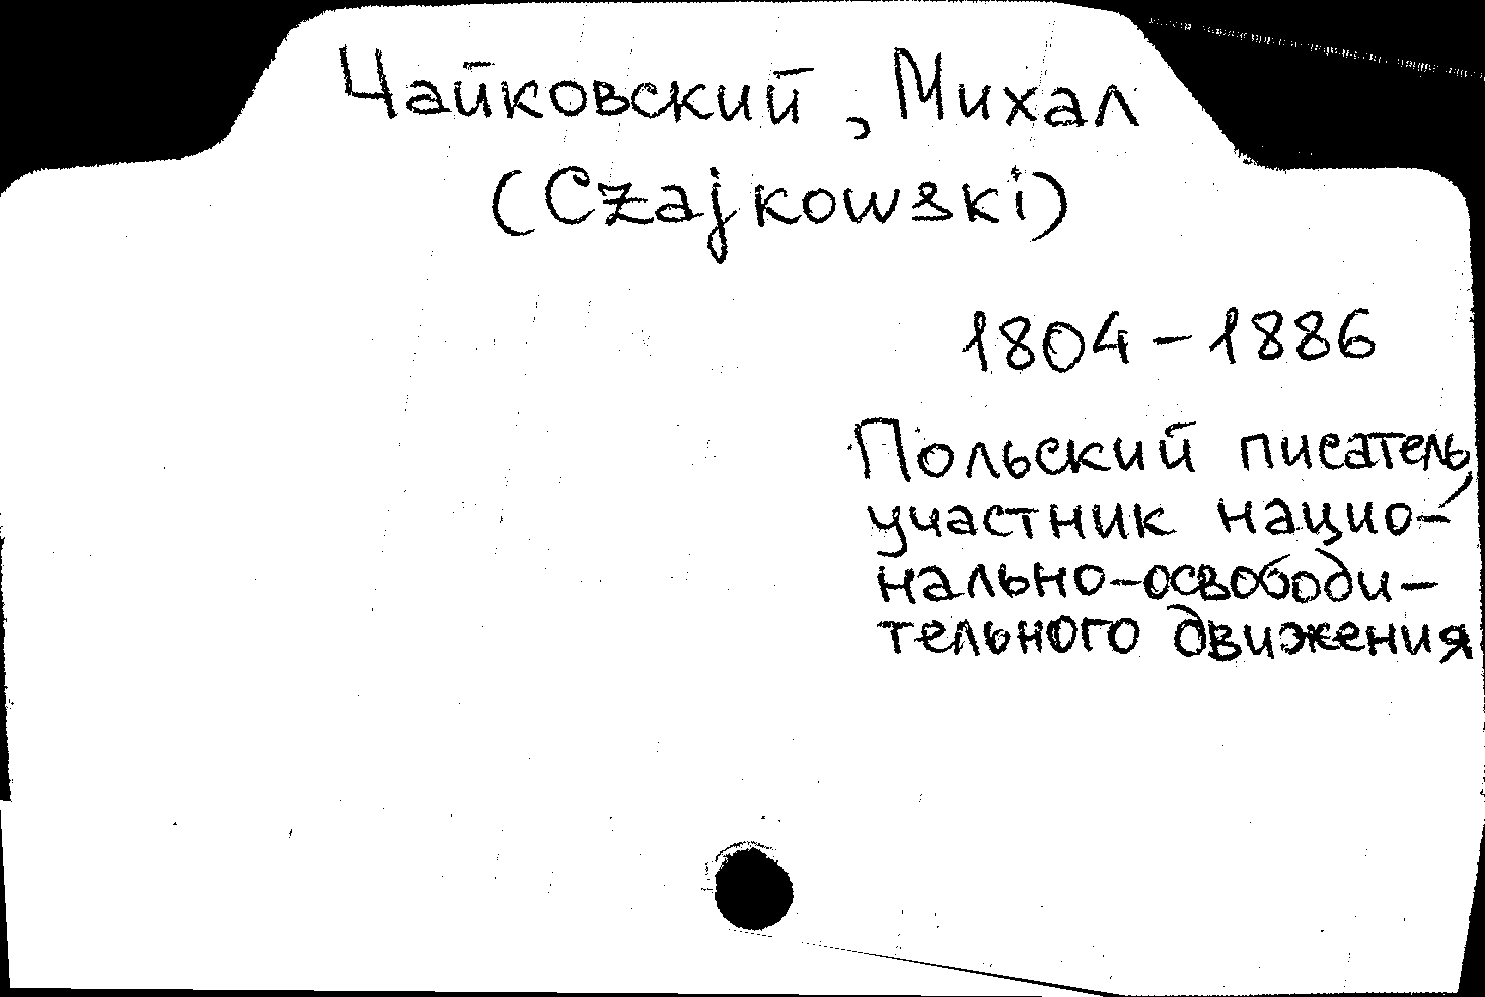 Чайковский, Михал
(Czajkowski)
1804-1886
Польский писатель,
участник нацио-
нально-освободи-
тельного движения